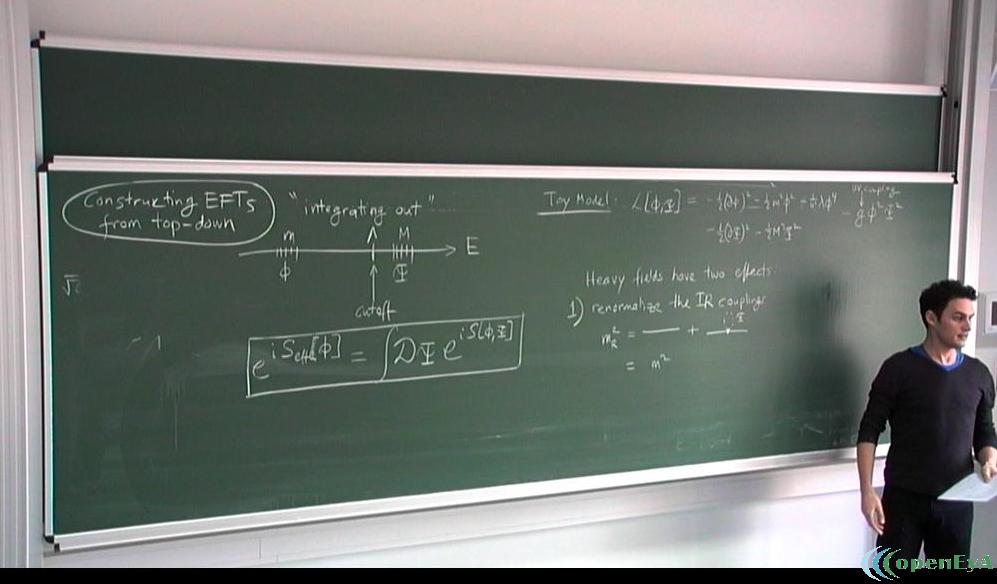 Constructing EFTs
from top-down
"integrating out"
m
Λ
M
E
φ
Ψ
cutoff
e^{iS_eff[φ]} = ∫DΨ e^{iS[φ,Ψ]}
Toy Model: L[φ,Ψ] = -½(∂φ)² - ½m²φ² - 1/4! λφ⁴
-½(∂Ψ)² - ½M²Ψ²
UV coupling
- g φ²Ψ²
Heavy fields have two effects:
1) renormalize the IR couplings
Ψ
m_R² = — + —
= m²
openEyA